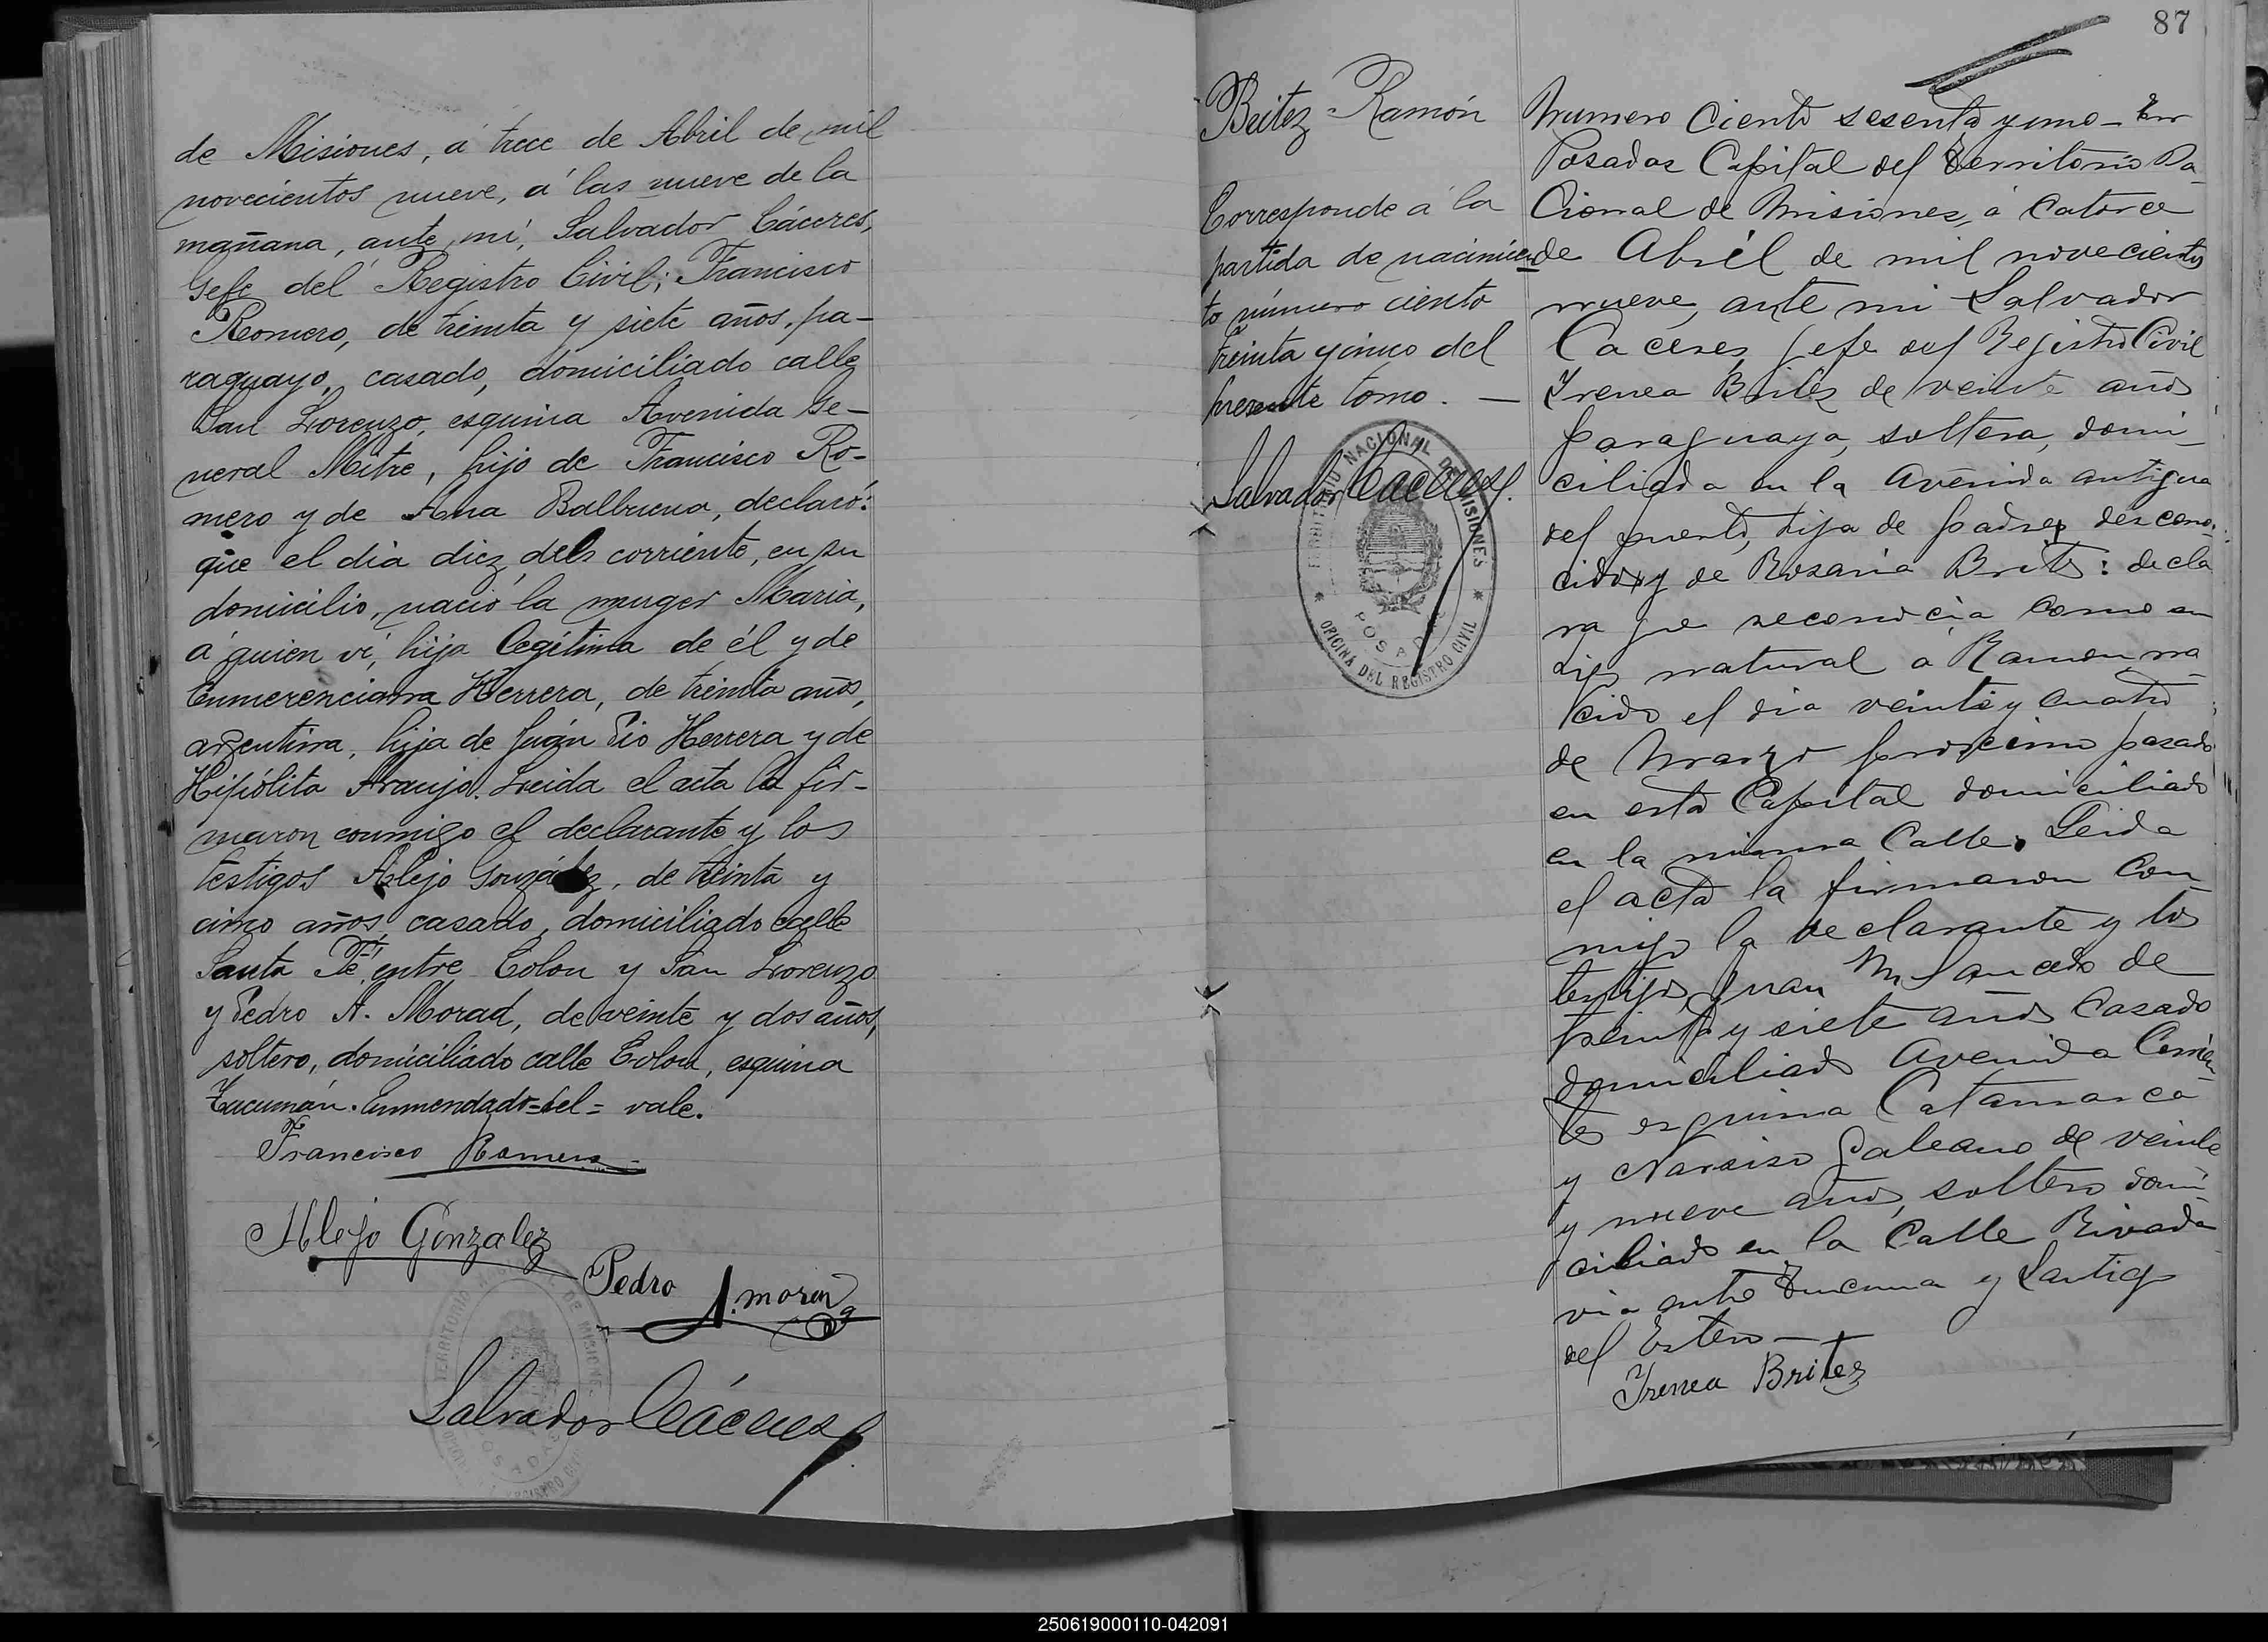 de Misiones, á trece de Abril de mil
novecientos nueve, á las nueve de la
mañana, ante mi, Salvador Cáceres,
Gefe del Registro Civil; Francisco
Romero, de treinta y siete años, pa-
raguayo, casado, domiciliado calle
San Lorenzo, esquina Avenida Ge-
neral Mitre, hijo de Francisco Ro-
mero y de Ana Balbuena, declaró:
que el dia diez del corriente, en su
domicilio, nació la muger Maria,
á quien ví, hija legítima de él y de
Enmerenciana Herrera, de treinta años,
argentina, hija de Juán Pio Herrera y de
Hipólita Araujo. Leida el acta la fir-
maron conmigo el declarante y los
testigos Alejo González, de treinta y
cinco años, casado, domiciliado calle
Santa Fé, entre Colon y San Lorenzo
y Pedro A. Morad, de veinte y dos años,
soltero, domiciliado calle Colon, esquina
Tucumán. Enmendado=del= vale.
Francisco Romero
Alejo Gonzalez
Pedro A. morad
TERRITORIO DE MISIONES
POSADAS
Salvador Cáceres
87
Beitez Ramón
Corresponde á la
partida de nacimien
to número ciento
treinta y cinco del
presente tomo. —
Salvador Cáceres.
TERRITORIO NACIONAL DE MISIONES
POSADAS
OFICINA DEL REGISTRO CIVIL
Numero Ciento sesenta y uno - En
Posadas Capital del Territorio Na-
cional de Misiones, á Catorce
de Abril de mil novecientos
nueve, ante mi Salvador
Caceres, Jefe del Registro Civil
Irenea Britez de veinte años
paraguaya, soltera, domi-
ciliada en la Avenida antigua
del puerto, hija de padre descono-
cido y de Rosaria Brite: decla
ra que reconocia como su
hijo natural a Ramon na-
cido el dia veinte y cuatro
de Marzo proximo pasado
en esta Capital domiciliado
en la misma Calle. Leida
el acta la firmaron Con
migo la declarante y los
testigos, Juan M Saucedo de
treinta y siete años Casado
domiciliado Avenida Corrien
tes esquina Catamarca
y Narciso Galeano de veinte
y nueve años, soltero domi-
ciliado en la Calle Rivada
via entre Tucuma y Santiago
del Estero —
Irenea Britez
250619000110-042091